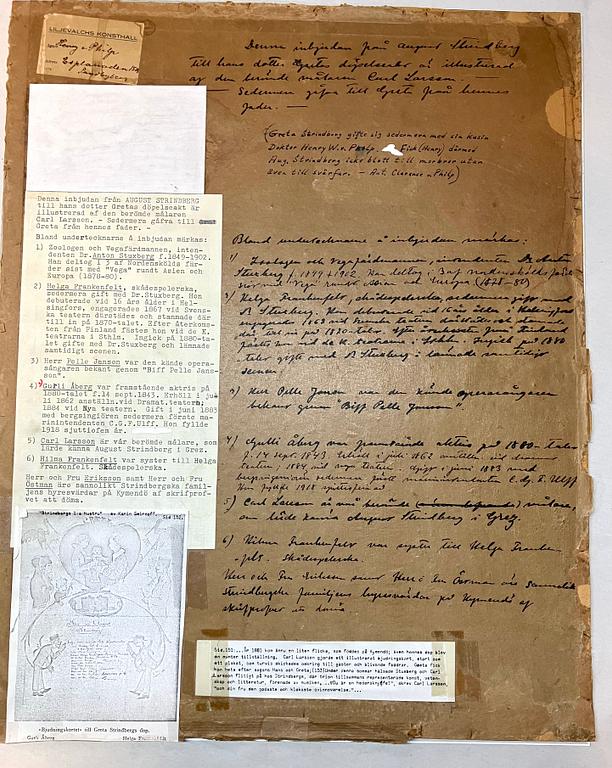 LILJEVALCHS KONSTHALL
Henry v Philp
Esplanaden
Sundbyberg
Denna inbjudan från August Strindberg
till hans dotter Gretas döpelseakt är illustrerad
af den berömde målaren Carl Larsson.
— Sedermera gifva till Greta från hennes
fader. —
(Greta Strindberg gifte sig sedermera med sin kusin
Doktor Henry W. v. Philp. Fick (Henry) därmed
Aug. Strindberg icke blott till morbror utan
även till svärfar. — Ant. Clarence v Philp)
Denna inbjudan från AUGUST STRINDBERG
till hans dotter Gretas döpelseakt är
illustrerad af den berömde målaren
Carl Larsson. - Sedermera gåfva till
Greta från hennes fader. -
Bland undertecknarna å inbjudan märkas:
1) Zoologen och Vegafärdmannen, inten-
denten Dr.Anton Stuxberg f.1849-1902.
Han deltog i 3 af Nordenskölds fär-
der sist med "Vega" rundt Asien och
Europa (1878-80).
2) Helga Frankenfelt, skådespelerska,
sedermera gift med Dr.Stuxberg. Hon
debuterade vid 16 års ålder i Hel-
singfors, engagerades 1867 vid Svens-
ka teatern därstädes och stannade där
till in på 1870-talet. Efter återkoms-
ten från Finland fästes hon vid de K.
teatrarna i Sthlm. Ingick på 1880-ta-
let gifte med Dr.Stuxberg och lämnade
samtidigt scenen.
3) Herr Pelle Janson var den kände opera-
sångaren bekant genom "Biff Pelle Jans-
son".
4) Gurli Åberg var framstående aktris på
1880-talet f.14 sept.1843. Erhöll i ju-
li 1862 anställn.vid Dramat.teatern
1884 vid Nya teatern. Gift i juni 1883
med bergsingiören sedermera förste ma-
rinintendenten C.G.F.Ulff. Hon fyllde
1918 sjuttiofem år.
5) Carl Larsson är vår berömde målare, som
lärde känna August Strindberg i Grez.
6) Hilma Frankenfelt var syster till Helga
Frankenfelt. Skådespelerska.
Herr och Fru Eriksson samt Herr och Fru
Östman äro sannolikt Strindbergska famil-
jens hyresvärdar på Kymendö af skrifprof-
vet att döma.
Bland undertecknarne å inbjudan märkas:
1) Zoologen och Vegafärdmannen, intendenten Dr Anton
Stuxberg f. 1849 † 1902. Han deltog i 3 af Nordenskölds färder
sist med Vega rundt Asien och Europa (1878-80)
2) Helga Frankenfelt, skådespelerska, sedermera gift med
D Stuxberg. Hon debuterade vid 16 års ålder i Helsingfors,
fästes hon vid de K. teatrarna i Sthlm. Ingick på 1880
talet gifte med D Stuxberg o lämnade samtidigt
scenen.
3) Herr Pelle Janson var den kände operasångaren
bekant genom "Biff Pelle Jansson".
4) Gulli Åberg var framstående aktris på 1880-talet
f. 14 sept. 1843. Erhöll i juli 1862 anställn. vid dramat
teatern; 1884 vid nya teatern. Gift i juni 1883 med
bergsingiören sedermera förste marinintendenten C. G. F. Ulff.
Hon fyllde 1918 sjuttiofem år.
5) Carl Larsson är vår berömde målare,
som lärde känna August Strindberg i Grez.
6) Hilma Frankenfelt var syster till Helga Franken-
felt. Skådespelerska.
Herr och Fru Eriksson samt Herr o Fru Östman äro Sannolikt
Strindbergska familjens hyresvärdar på Kymendö af
skrifprofvet att döma.
"Strindbergs 1:a Hustru" av Karin Smirnoff. Sid 152.
»Bjudningskortet» till Greta Strindbergs dop.
Gurli Åberg Helga Frankenfeldt
Sid.151:...År 1881 kom ännu en liten flicka, som föddes på Kymendö; även hennes dop blev
en munter tillställning. Carl Larsson gjorde ett illustrerat bjudningskort, stort som
ett plakat, som turvis skickades omkring till gäster och blivande faddrar. Greta fick
hon heta efter sagans Hans och Greta.(153)Under denna sommar hälsade Stuxberg och Carl
Larsson flitigt på hos Strindbergs, där tröjan tillsammans representerade konst, veten-
skap och litteratur, förenade av musiken, ..."Du är en hedersknyffel", skrev Carl Larsson,
"och din fru den godaste och klokaste qvinnovarelse."...